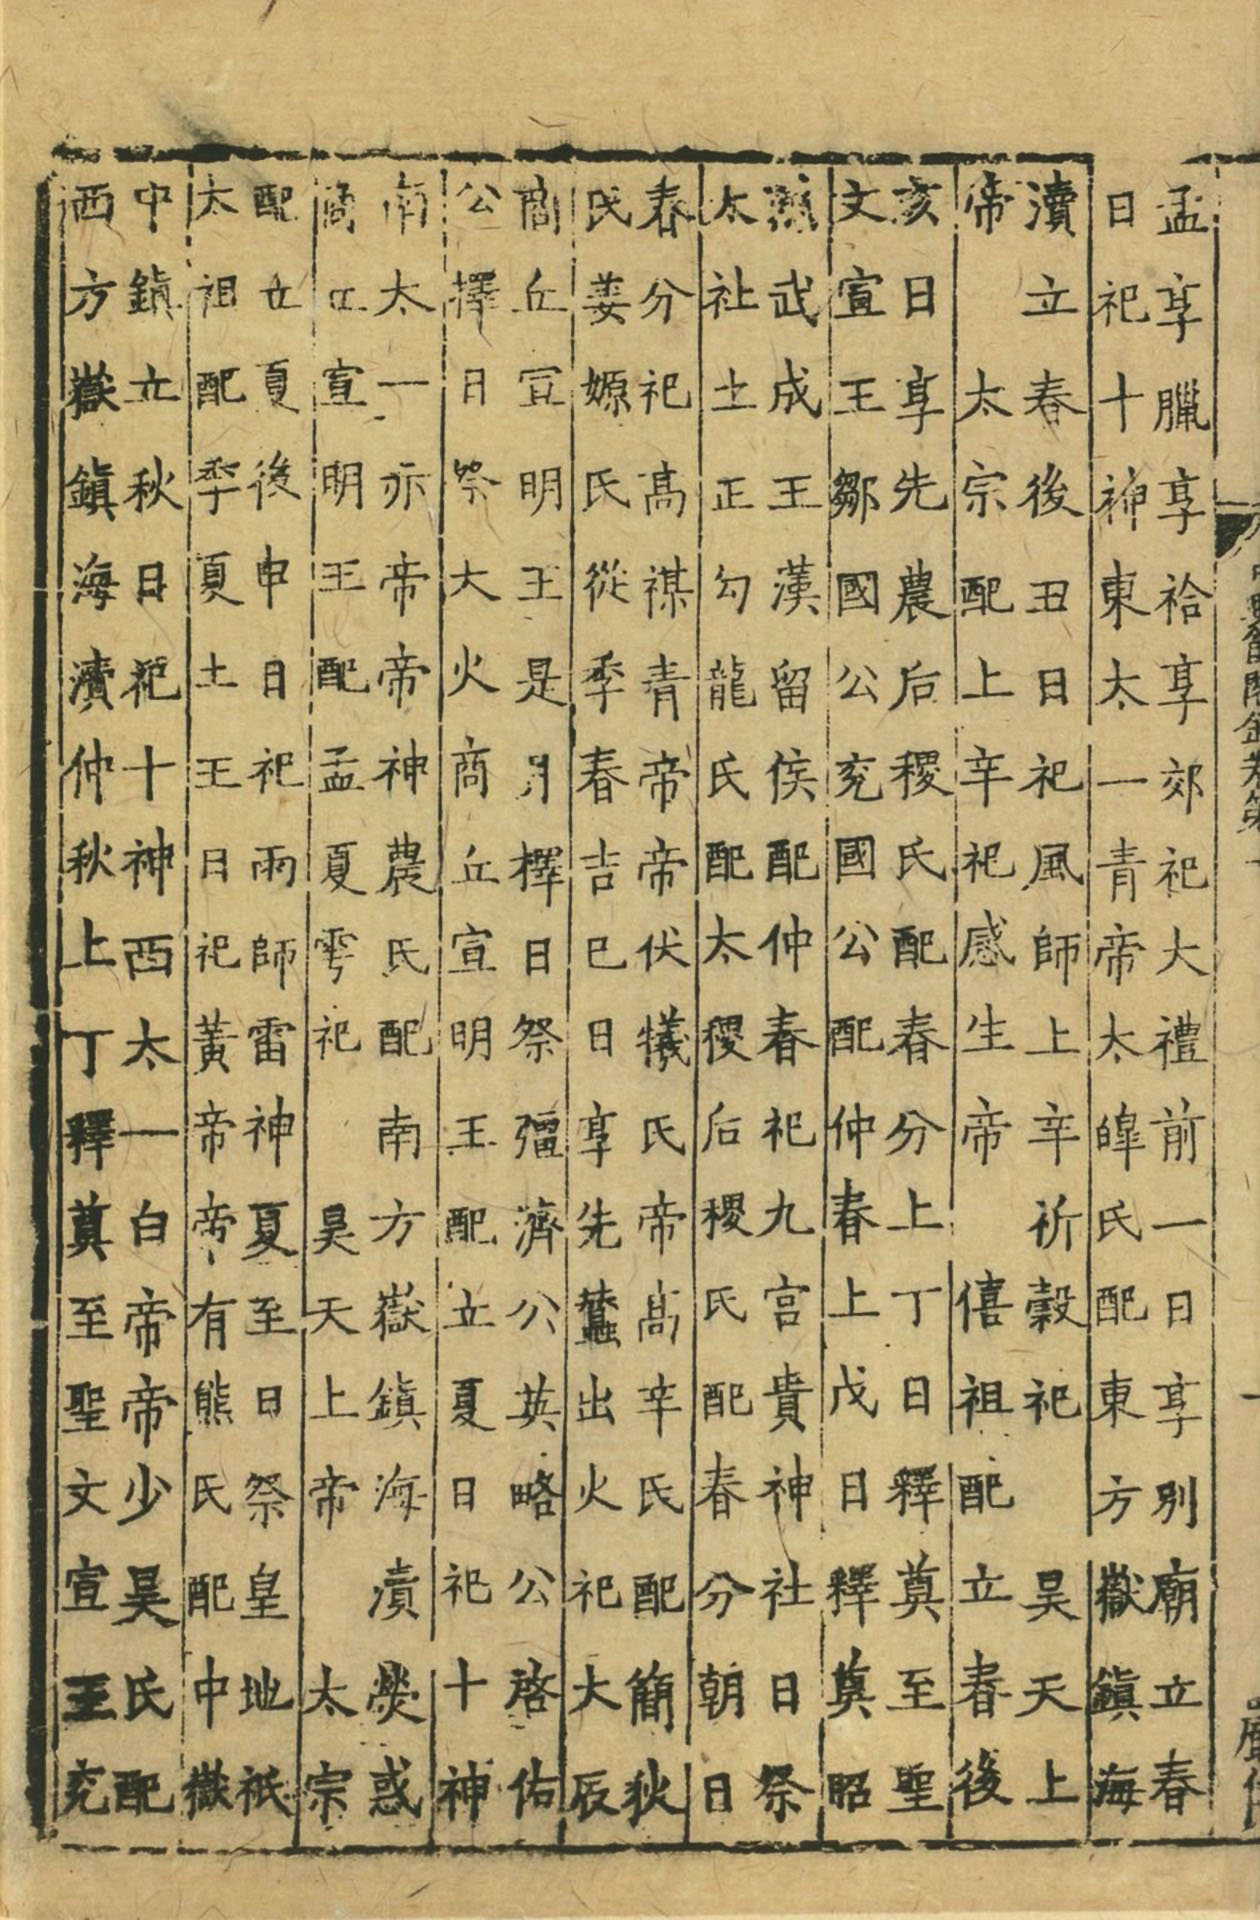 孟享臘享祫享郊祀大禮前一日享別廟立春
日祀十神東太一青帝太皥氏配東方嶽鎮海
瀆　立春後丑日祀風師上辛祈穀祀　昊天上
帝　太宗配上辛祀感生帝　僖祖配立春後
亥日享先農后稷氏配春分上丁日釋奠至聖
文宣王鄒國公兖國公配仲春上戊日釋奠昭
烈武成王漢留侯配仲春祀九宮貴神社日祭
太社土正勾龍氏配太稷后稷氏配春分朝日
春分祀高禖青帝帝伏犧氏帝高辛氏配簡狄
氏姜嫄氏從季春吉巳日享先蠶出火祀大辰
商丘宣明王是月擇日祭彊濟公英略公啓佑
公擇日祭大火商丘宣明王配立夏日祀十神
南太一赤帝帝神農氏配南方嶽鎮海瀆熒惑
商丘宣明王配孟夏雩祀　昊天上帝　太宗
配立夏後申日祀雨師雷神夏至日祭皇地祇
太祖配季夏土王日祀黃帝帝有熊氏配中嶽
中鎮立秋日祀十神西太一白帝帝少昊氏配
西方嶽鎮海瀆仲秋上丁釋奠至聖文宣王兖